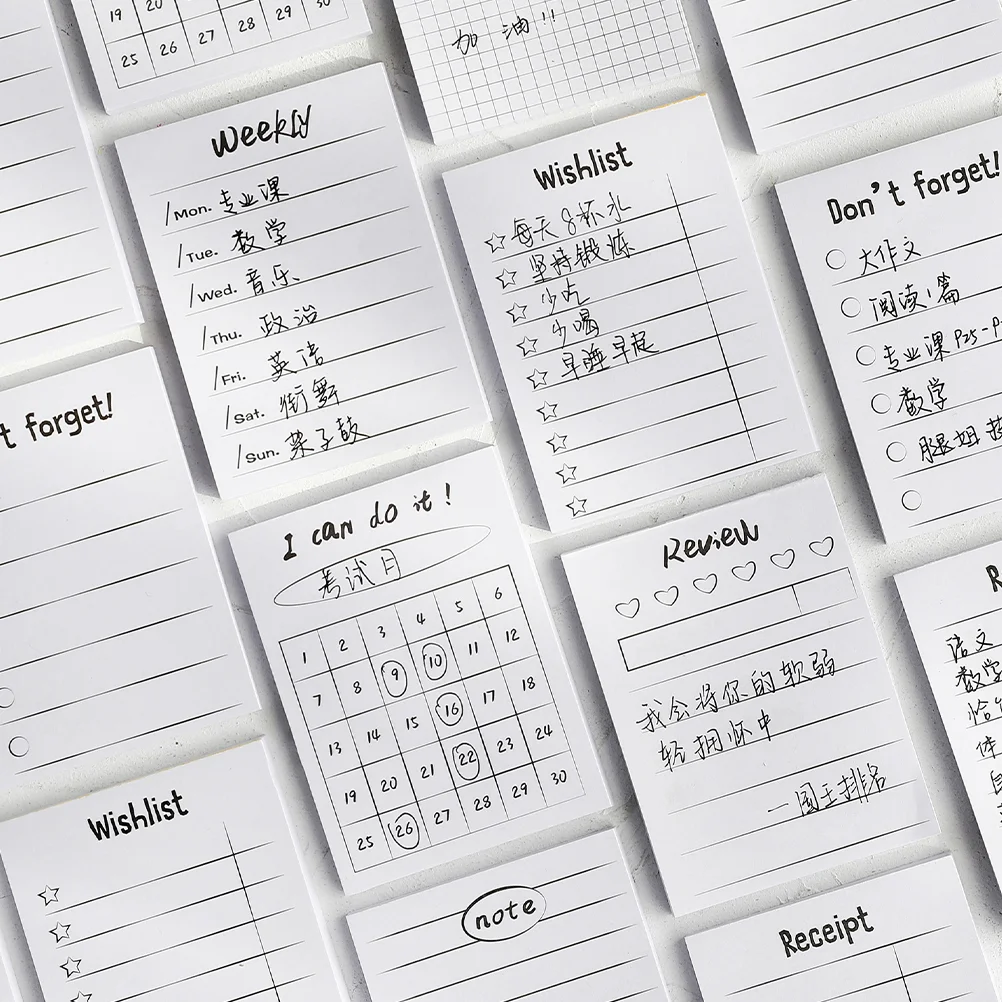 19 20
25 26 27 28 29 30
加油!!
Weekly
/Mon. 专业课
/Tue. 数学
/Wed. 音乐
/Thu. 政治
/Fri. 英语
/Sat. 街舞
/Sun. 架子鼓
Wishlist
每天8杯水
坚持锻炼
少吃
少喝
早睡早起
Don't forget!
大作文
阅读1篇
专业课 P25-P
数学
t forget!
I can do it!
考试月
1 2 3 4 5 6
7 8 9 10 11 12
13 14 15 16 17 18
19 20 21 22 23 24
25 26 27 28 29 30
Review
我会将你的软弱
轻拥怀中
—国王排名
R
语文
数学
体
Wishlist
note
Receipt